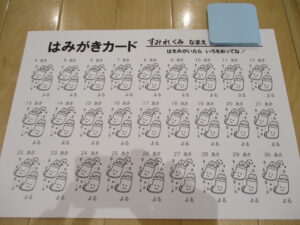 はみがきカード
すみれ くみ なまえ
はをみがいたら いろをぬってね
4 あさ 5 あさ 6 あさ 7 あさ 8 あさ 9 あさ 10 あさ 11 あさ 12 あさ
よる よる よる よる よる よる よる よる よる
13 あさ 14 あさ 15 あさ 16 あさ 17 あさ 18 あさ 19 あさ 20 あさ 21 あさ
よる よる よる よる よる よる よる よる よる
22 あさ 23 あさ 24 あさ 25 あさ 26 あさ 27 あさ 28 あさ 29 あさ 30 あさ
よる よる よる よる よる よる よる よる よる